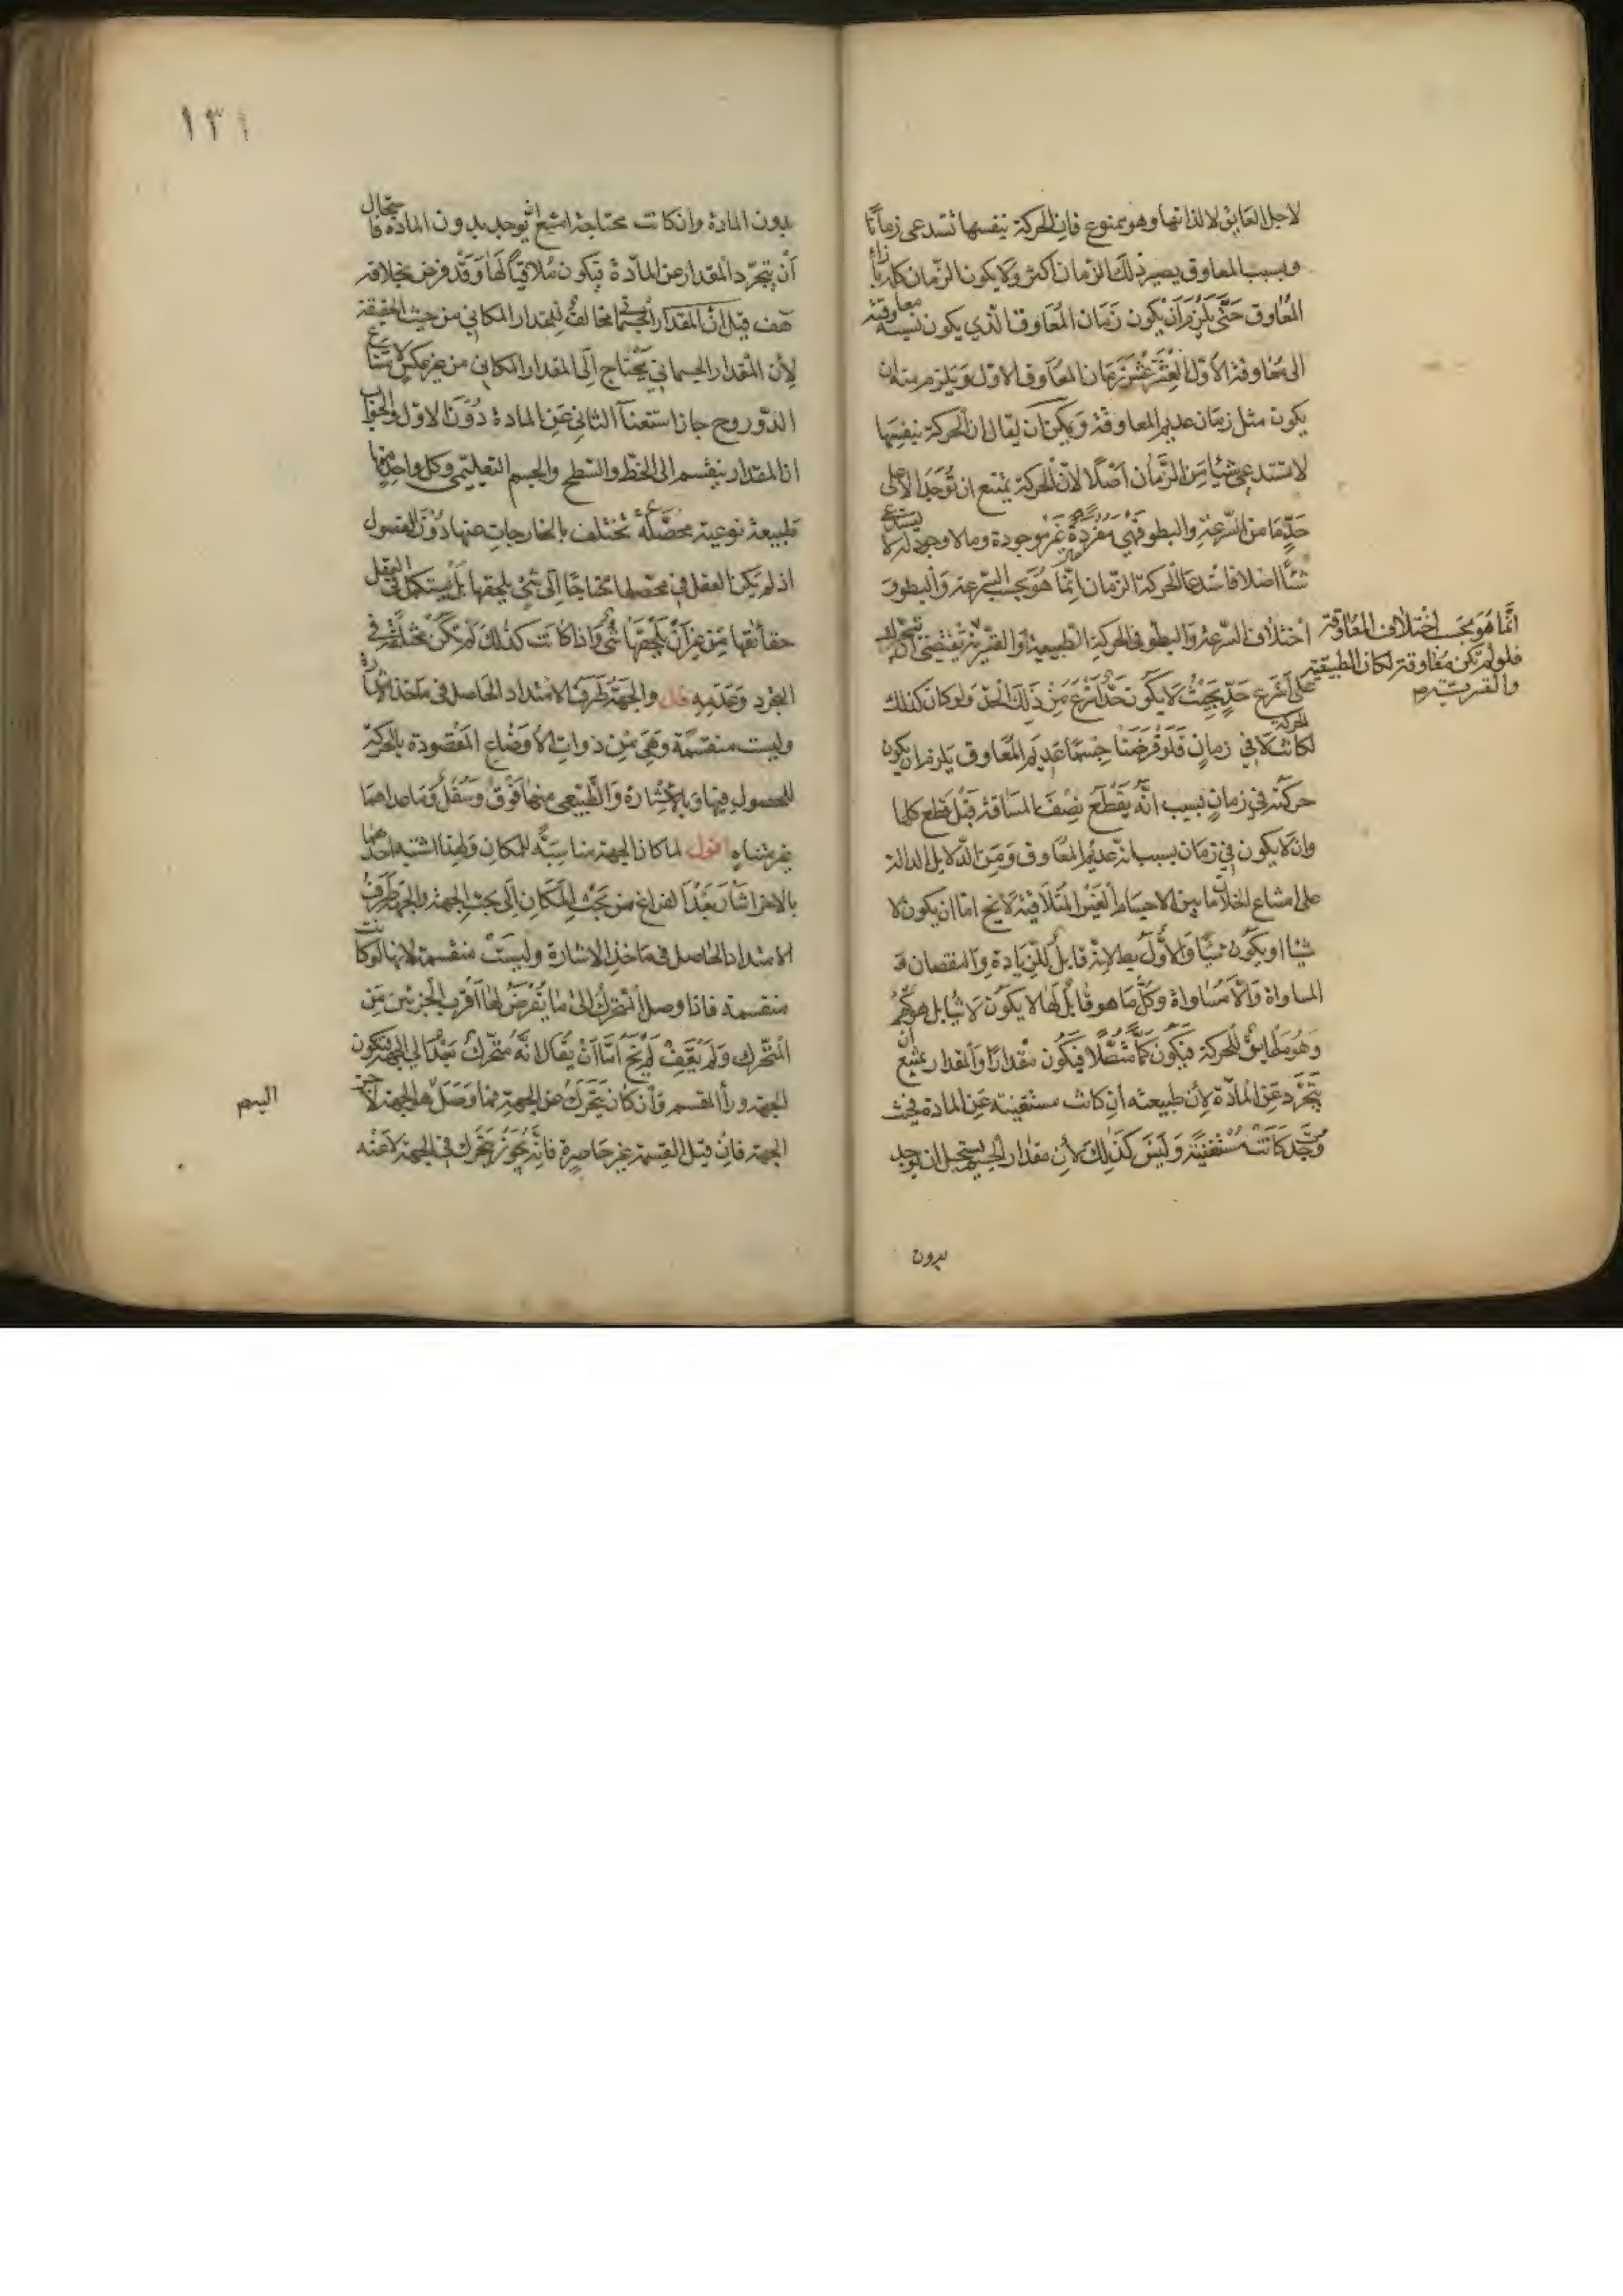 لاجل العايق لا لذاتها وهو ممنوع فان الحركة بنفسها تستدعى زمانا
وبسبب المعاوق يصير ذلك الزمان اكثر ولا يكون الزمان كله بازاء
المعاوق حتى يلزم ان يكون زمان المعاوق الذي يكون نسبة معاوقته
الى معاوقة الاول العشر عشر زمان المعاوق الاول ويلزم منه ان
يكون مثل زمان عديم المعاوقة ويمكن ان يقال ان الحركة بنفسها
لا تستدعي شيئا من الزمان اصلا لان الحركة يمتنع ان توجد الا على
حد ما من السرعة والبطو فهي مفردة غير موجودة وما لا وجود له لا يستدعي
شيئا اصلا فاستدعا الحركة الزمان انما هو بحسب السرعة والبطو و
اختلاف السرعة والبطو في الحركة الطبيعية او القسرية
انما هو بحسب اختلاف المعاوقة
فلو لم تكن معاوقة لكان الطبيعية
والقسرية
على اسرع حد بحيث لا يكون حد اسرع من ذلك الحد ولو كان كذلك
لكانت الحركة لا في زمان فلو فرضنا جسما عديم المعاوق يلزم ان يكون
حركته في زمان بسبب انه يقطع نصف المسافة قبل قطع كلها
وان لا يكون في زمان بسبب انه عديم المعاوق ومن الدلايل الدالة
على امتناع الخلا ان ما بين الاجسام الغير المتلاقية لا يخ اما ان يكون لا
شيئا او يكون شيئا والاول بط لانه قابل للزيادة والنقصان و
المساواة واللامساواة وكل ما هو قابل لها لا يكون لا شيئا بل هو كم
وهو مطابق للحركة فيكون كما متصلا فيكون مقدارا والمقدار يمتنع ان
يتجرد عن المادة لان طبيعته ان كانت مستغنية عن المادة فحيث
وجد كانت مستغنية وليس كذلك لان مقدار الجسم يستحيل ان يوجد
بدون
١٣١
بدون المادة وان كانت محتاجة امتنع ان يوجد بدون المادة فاستحال
ان يتجرد المقدار عن المادة فيكون ملاقيا لها وقد فرض بخلافه
هف قيل ان المقدار الجسماني مخالف للمقدار المكاني من حيث الحقيقة
لان المقدار الجسماني يحتاج الى المقدار المكاني من غير عكس لامتناع
الدور وح جاز استغنا الثاني عن المادة دون الاول والجواب
ان المقدار ينقسم الى الخط والسطح والجسم التعليمي وكل واحد منها
طبيعة نوعية محصلة تختلف بالخارجات عنها دون الفصول
اذ لم يكن العقل في محصلها محتاجا الى شي يلحقها بل يستكمل في العقل
حقائقها من غير ان يلحقها شي واذا كانت كذلك لم تكن مختلفة في
التجرد وعدمه قال والجهة طرف الامتداد الحاصل في ماخذ الاشارة
وليست منقسمة وهي من ذوات الاوضاع المقصودة بالحركة
للحصول فيها وبالاشارة والطبيعي منها فوق وسفل وما عداهما
غير متناه اقول لما كان الجهة مناسبة للمكان ولهذا اشتبه احدهما
بالاخر اشار بعد الفراغ من بحث المكان الى بحث الجهة والجهة طرف
الامتداد الحاصل في ماخذ الاشارة وليست منقسمة لانها لو كانت
منقسمة فاذا وصل المتحرك الى ما يفرض لها اقرب الجزئين من
المتحرك ولم يقف لم يخ اما ان يقال انه متحرك بعد الى الجهة فتكون
الجهة وراء المقسم وان كان يتحرك عن الجهة فما وصل هو الجهة لا جزء
الجهة فان قيل القسمة غير حاصرة فانه يجوز تحرك في الجهة لا عنه